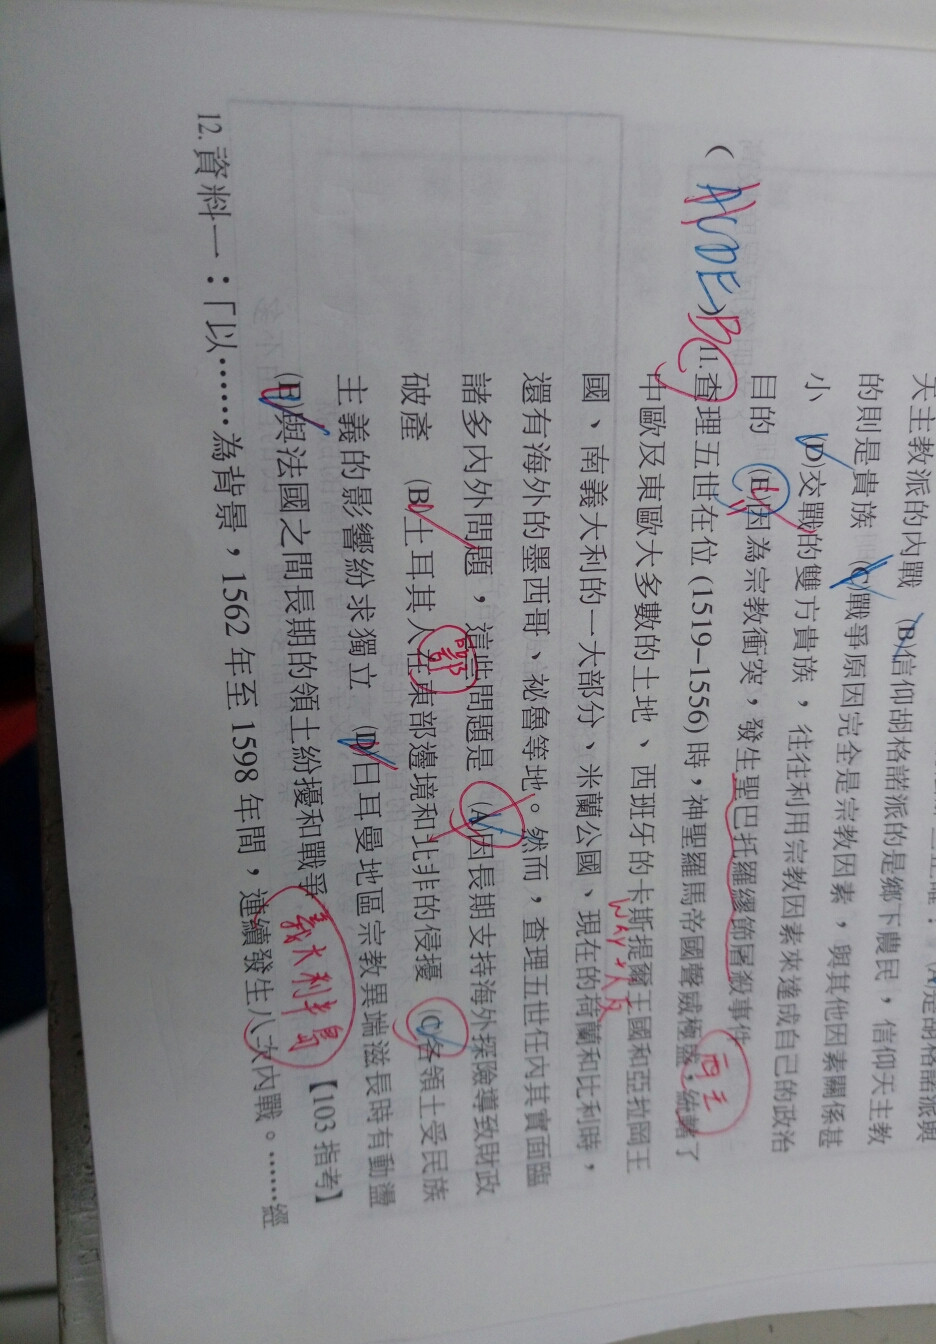 天主教派的內戰 (B)信仰胡格諾派的是鄉下農民，信仰天主教
的則是貴族 (C)戰爭原因完全是宗教因素，與其他因素關係甚
小 (D)交戰的雙方貴族，往往利用宗教因素來達成自己的政治
目的 (E)因為宗教衝突，發生聖巴托羅繆節屠殺事件
11.查理五世在位 (1519–1556) 時，神聖羅馬帝國聲威極盛；統轄了
中歐及東歐大多數的土地、西班牙的卡斯提爾王國和亞拉岡王
國、南義大利的一大部分、米蘭公國、現在的荷蘭和比利時，
還有海外的墨西哥、祕魯等地。然而，查理五世任內其實面臨
諸多內外問題，這些問題是 (A)因長期支持海外探險導致財政
破產 (B)土耳其人在東部邊境和北非的侵擾 (C)各領土受民族
鄂
主義的影響紛求獨立 (D)日耳曼地區宗教異端滋長時有動盪
(E)與法國之間長期的領土紛擾和戰爭 【103 指考】
義大利半島
12.資料一：「以……為背景，1562 年至 1598 年間，連續發生八次內戰。……經